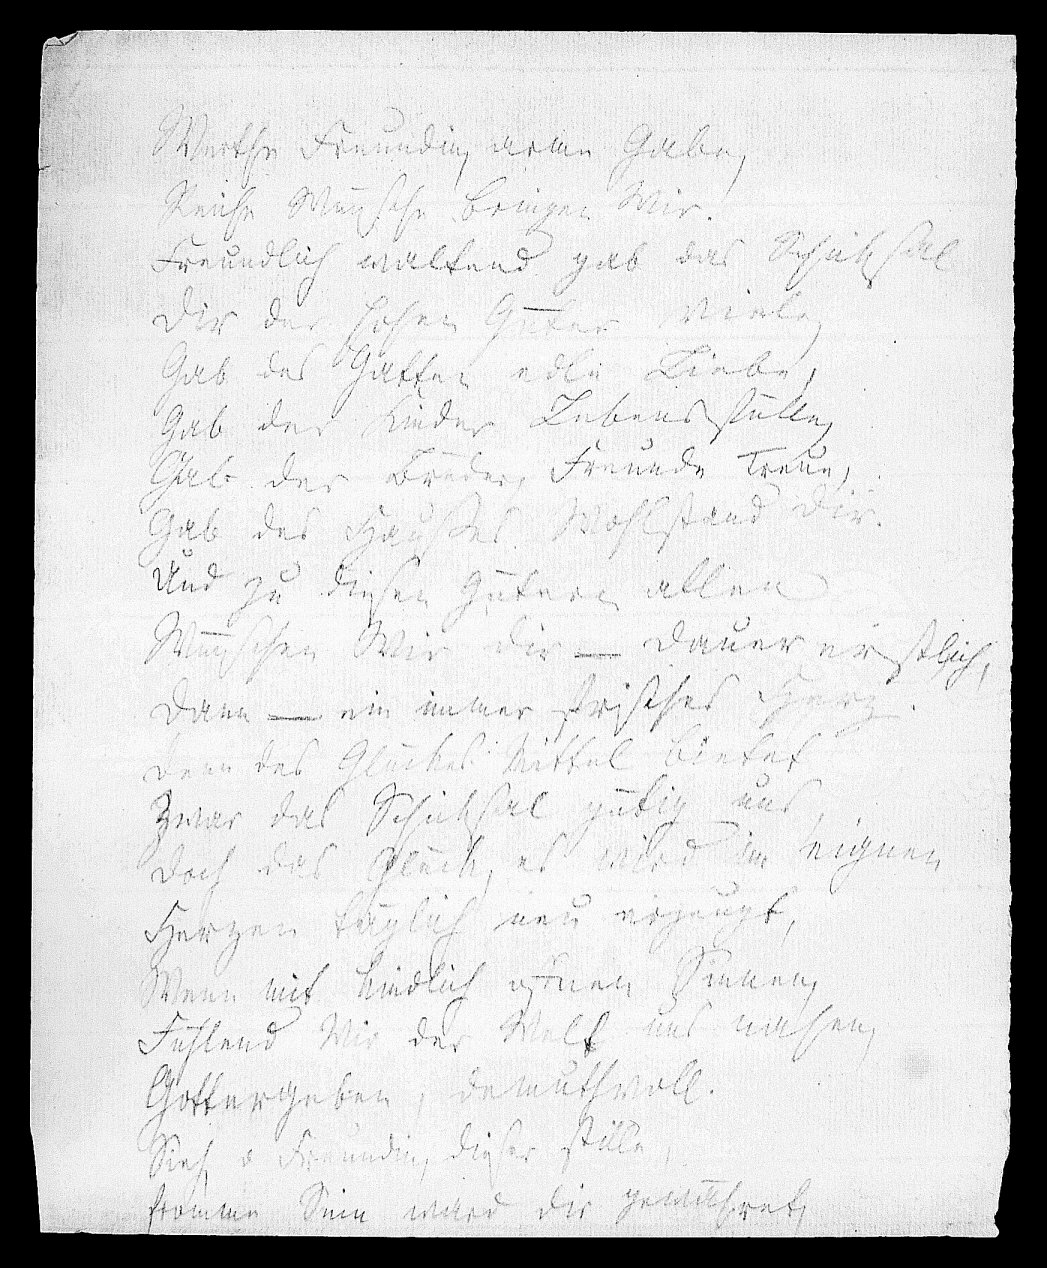 Werthe Freundin, arme Gabe,
Reiche Wünsche bringen Wir.
Freundlich waltend gab das Schicksal
Dir der hohen Güter Viele,
Gab des Gatten edle Liebe,
Gab der Kinder Lebensfülle,
Gab der Brüder, Freunde Treue,
Gab des Hauses Wohlstand Dir.
Und zu diesen Gütern allen
Wünschen Wir dir — Dauer erstlich,
Dann — ein immer frisches Herz.
Denn des Glückes Mittel bietet
Zwar das Schicksal gütig uns,
Doch das Glück, es wird im eignen
Herzen täglich neu erzeugt,
Wenn mit kindlich offnen Sinnen,
Fühlend Wir der Welt uns nahen,
Gottergeben, demuthvoll.
Sieh, o Freundin, dieser stille,
fromme Sinn ward dir gewähret,